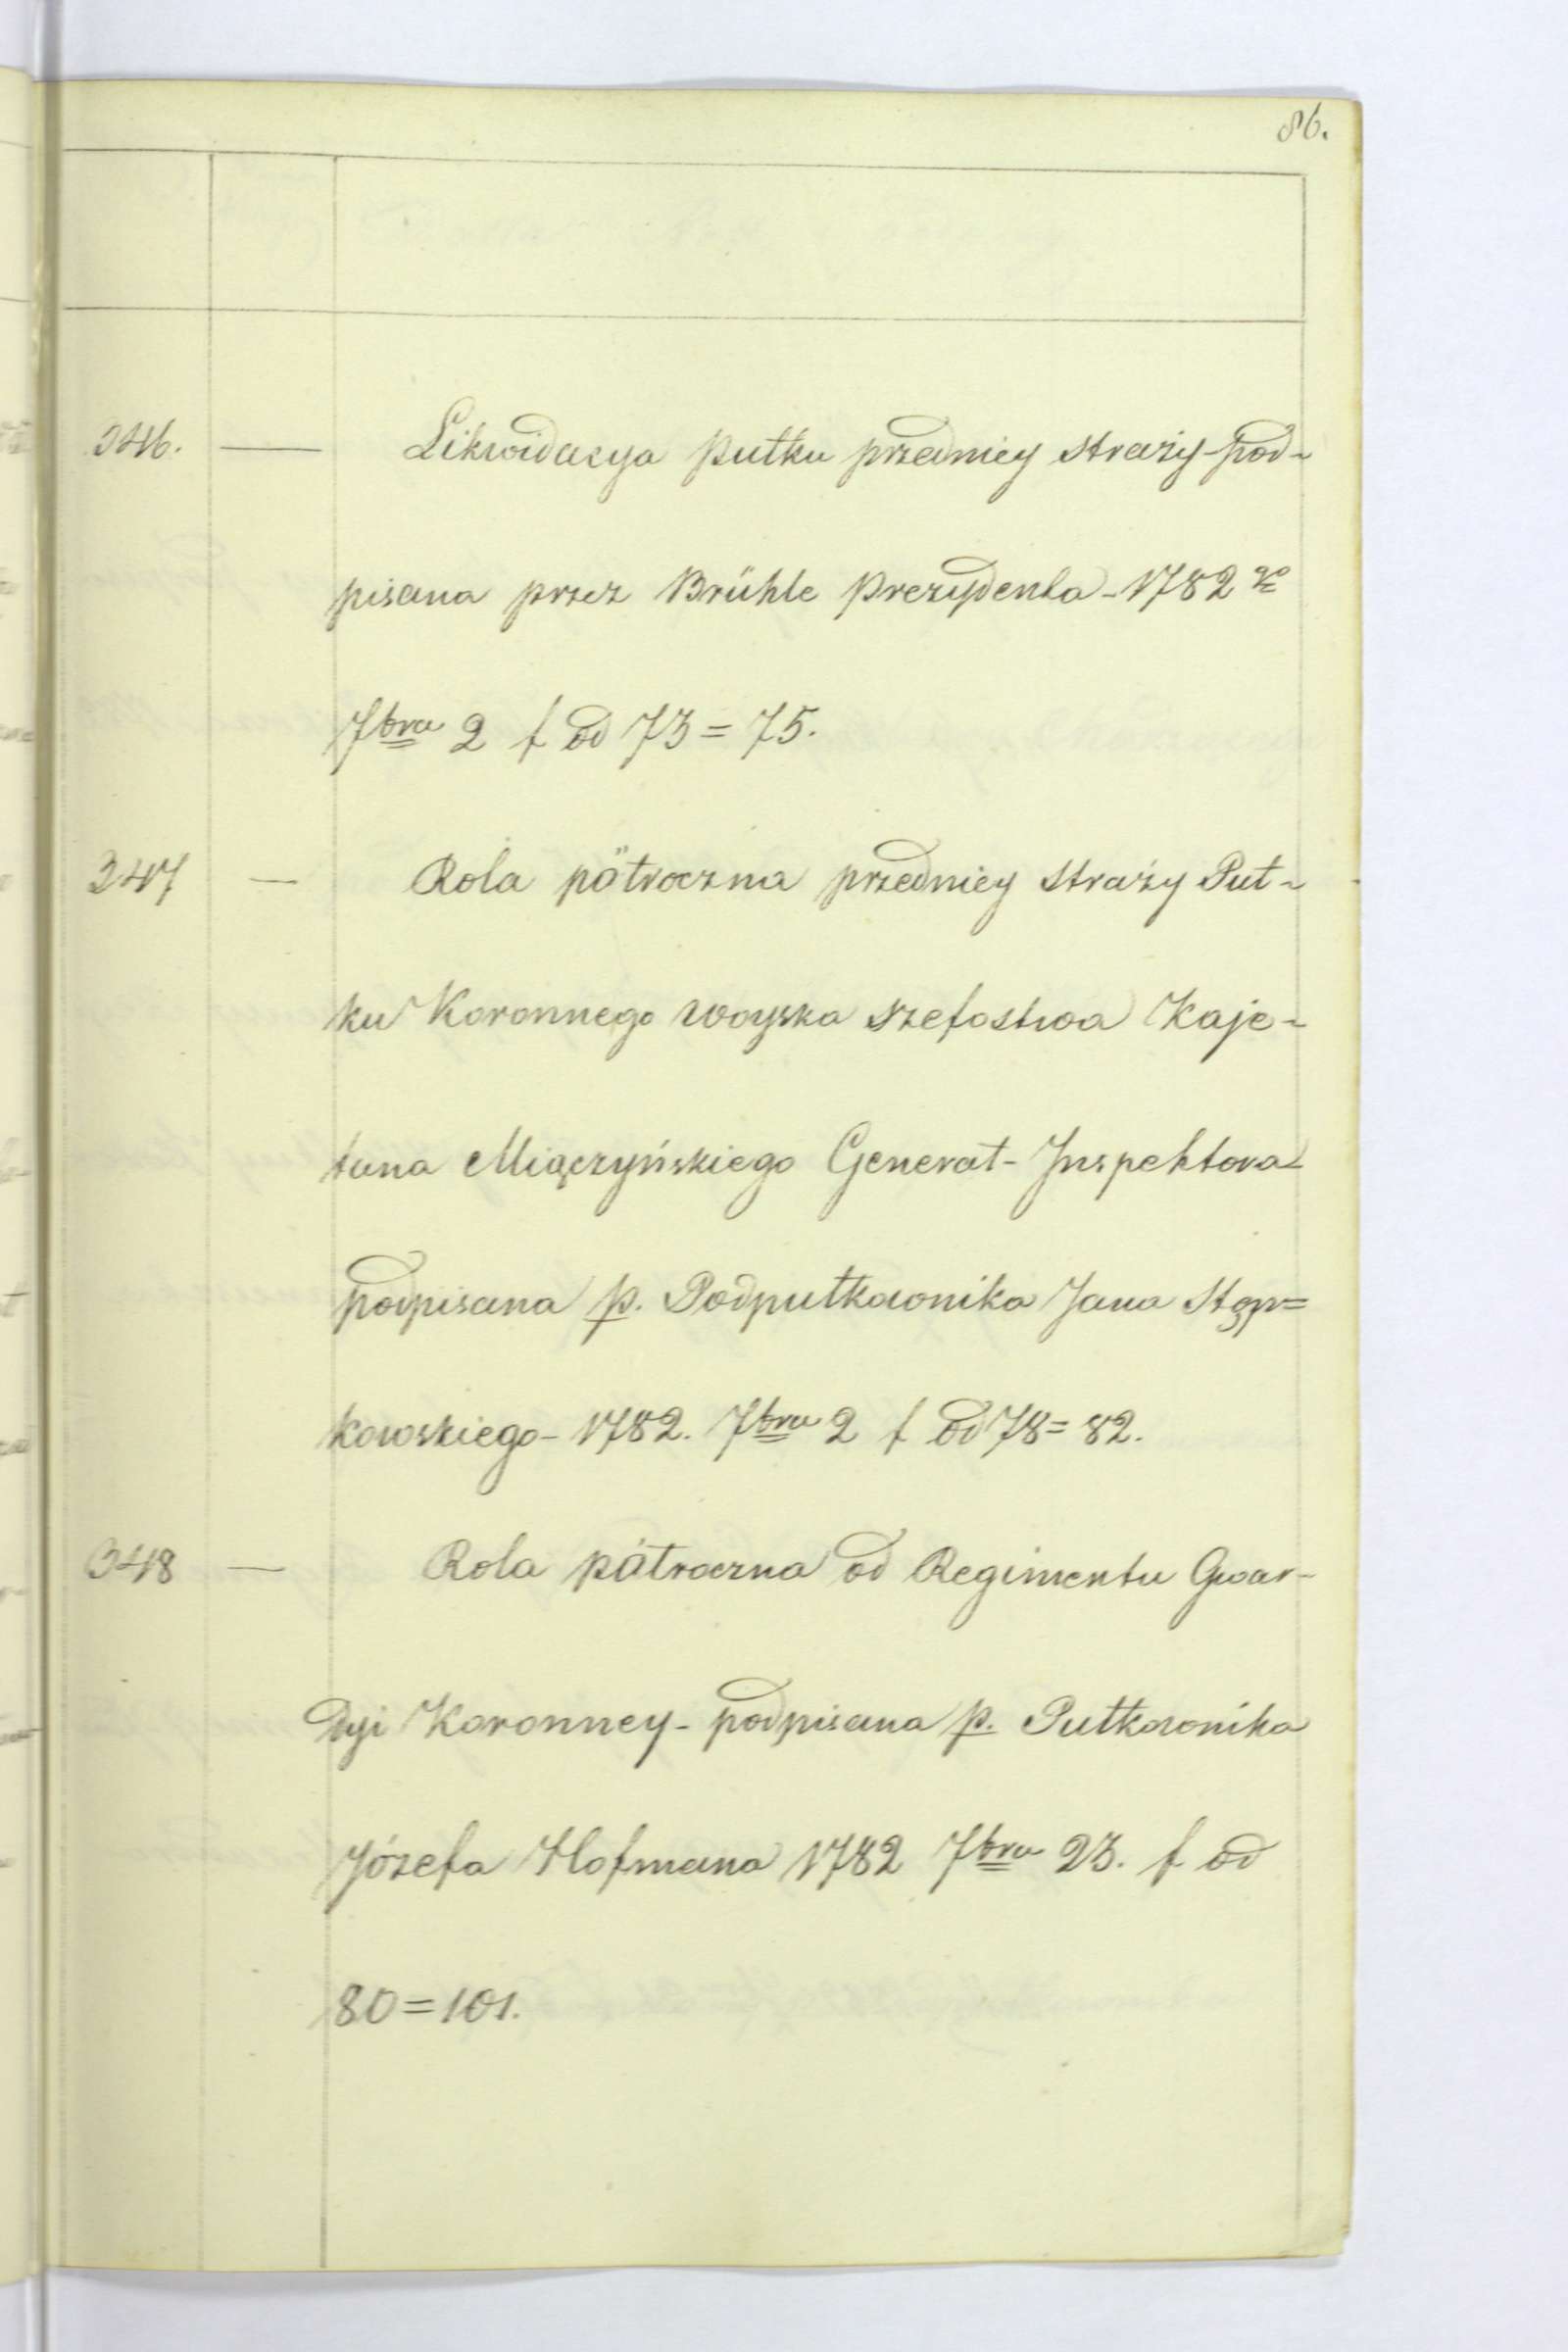 86.
346. — Likwidacya Pułku przedniey straży – pod-
pisana przez Brühle Prezydenta – 1782 r̃o
7bra 2 f od 73 = 75.
347 — Rola półroczna przedniey straży Puł-
ku Koronnego woyska szefostwa Kaje-
tana Miączyńskiego Generał-Inspektora
podpisana p. Podpułkownika Jana Stęp=
kowskiego – 1782. 7bra 2 f od 78 = 82.
348 — Rola półroczna od Regimentu Gwar-
dyi Koronney – podpisana p. Pułkownika
Józefa Hofmana 1782 7bra 23. f od
80 = 101.